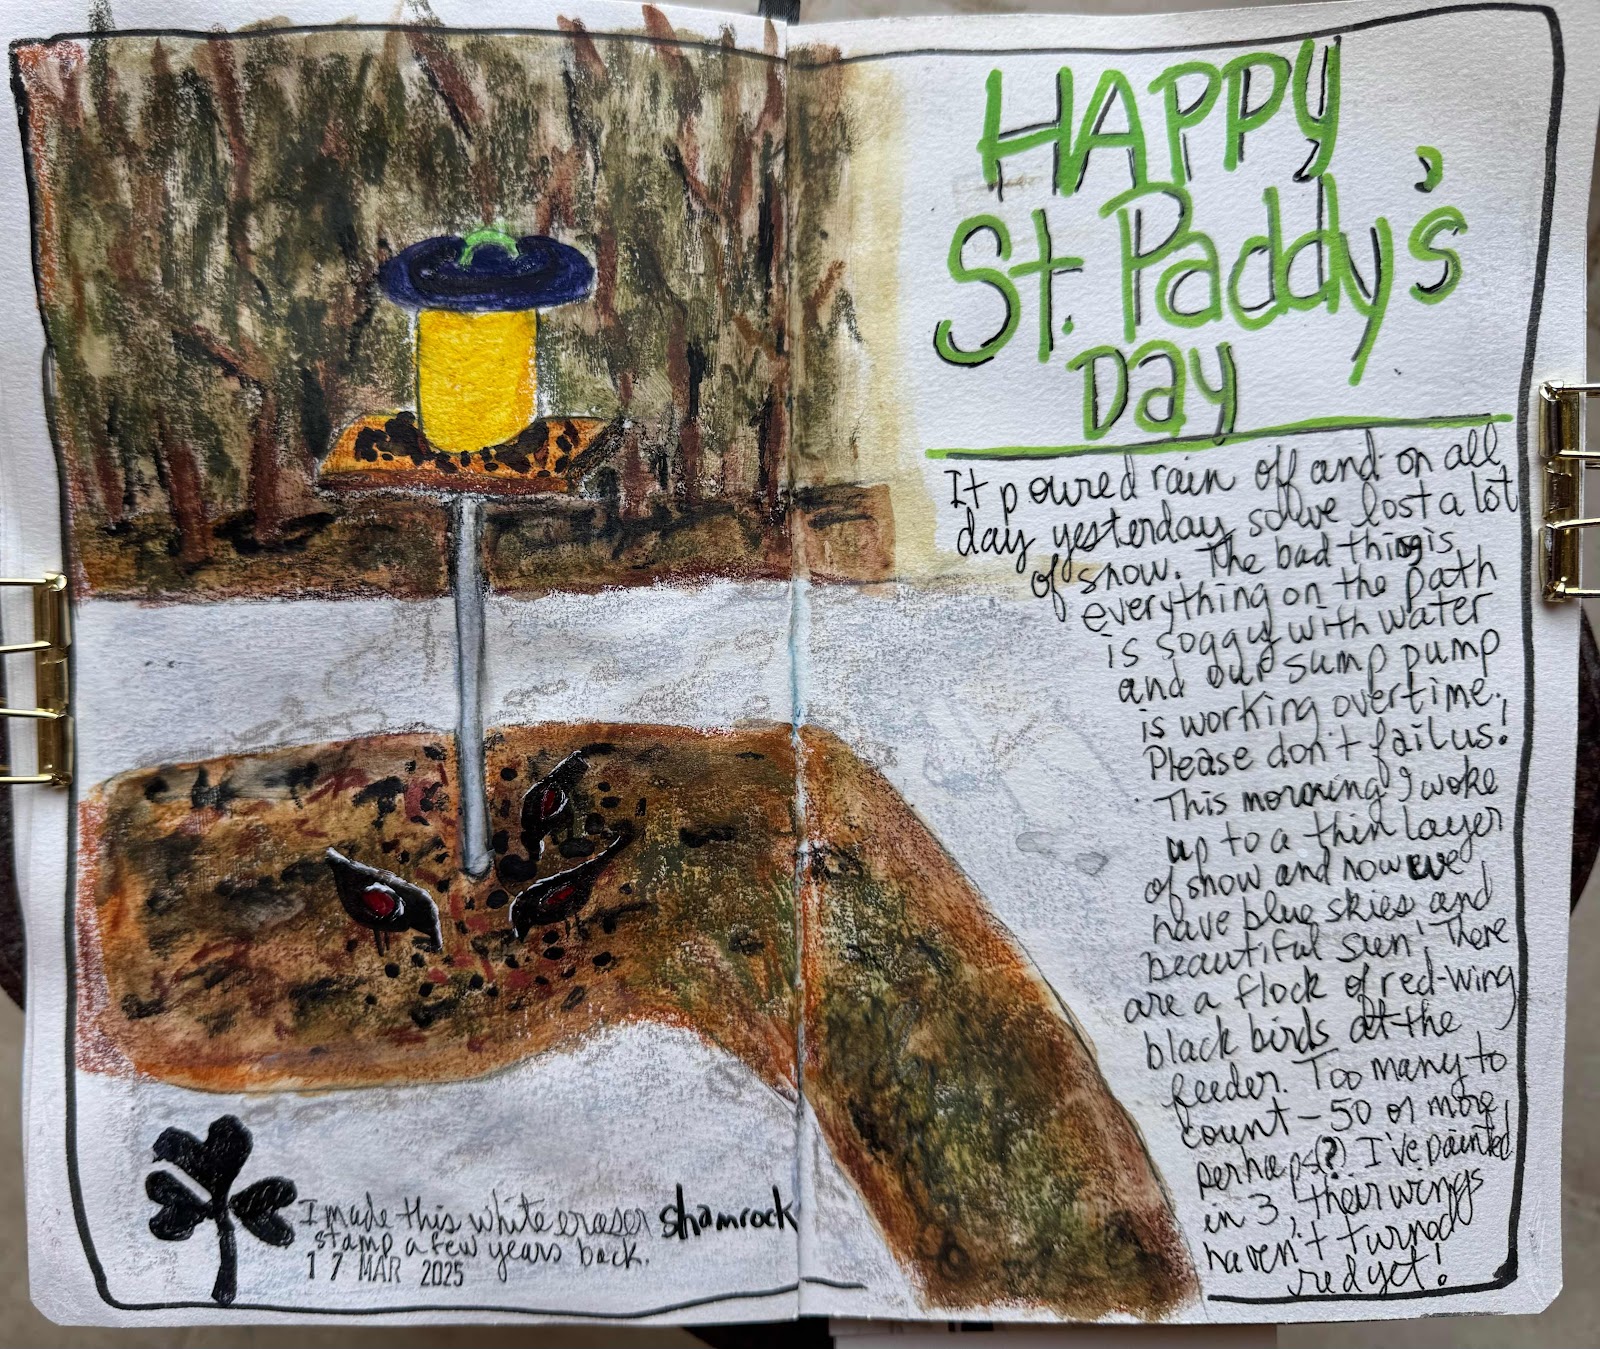 HAPPY
St. Paddy's
Day
It poured rain off and on all
day yesterday so we lost a lot
of snow. The bad thing is
everything on the path
is soggy with water
and our sump pump
is working overtime.
Please don't fail us!
This morning I woke
up to a thin layer
of snow and now we
have blue skies and
beautiful sun! There
are a flock of red-wing
black birds at the
feeder. Too many to
count - 50 or more,
perhaps(?) I've painted
in 3, their wings
haven't turned
red yet!
I made this white eraser shamrock
stamp a few years back.
17 MAR 2025